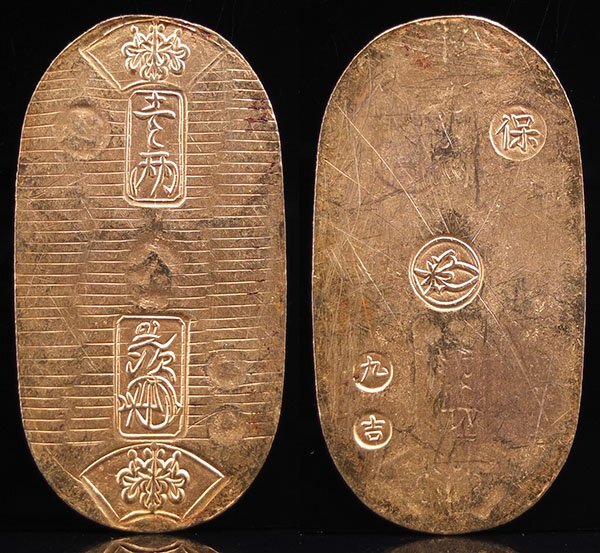 壹两
光次
保
九
吉